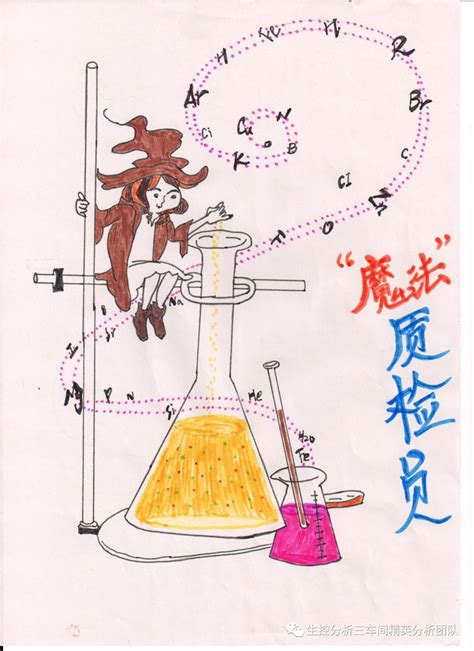 H
R
Ar
Br
Cu
N
K
B
C
O
Na
Si
Mg
P
N
Si
H2O
Fe
“魔法”
质检员
生控分析三车间精英分析团队